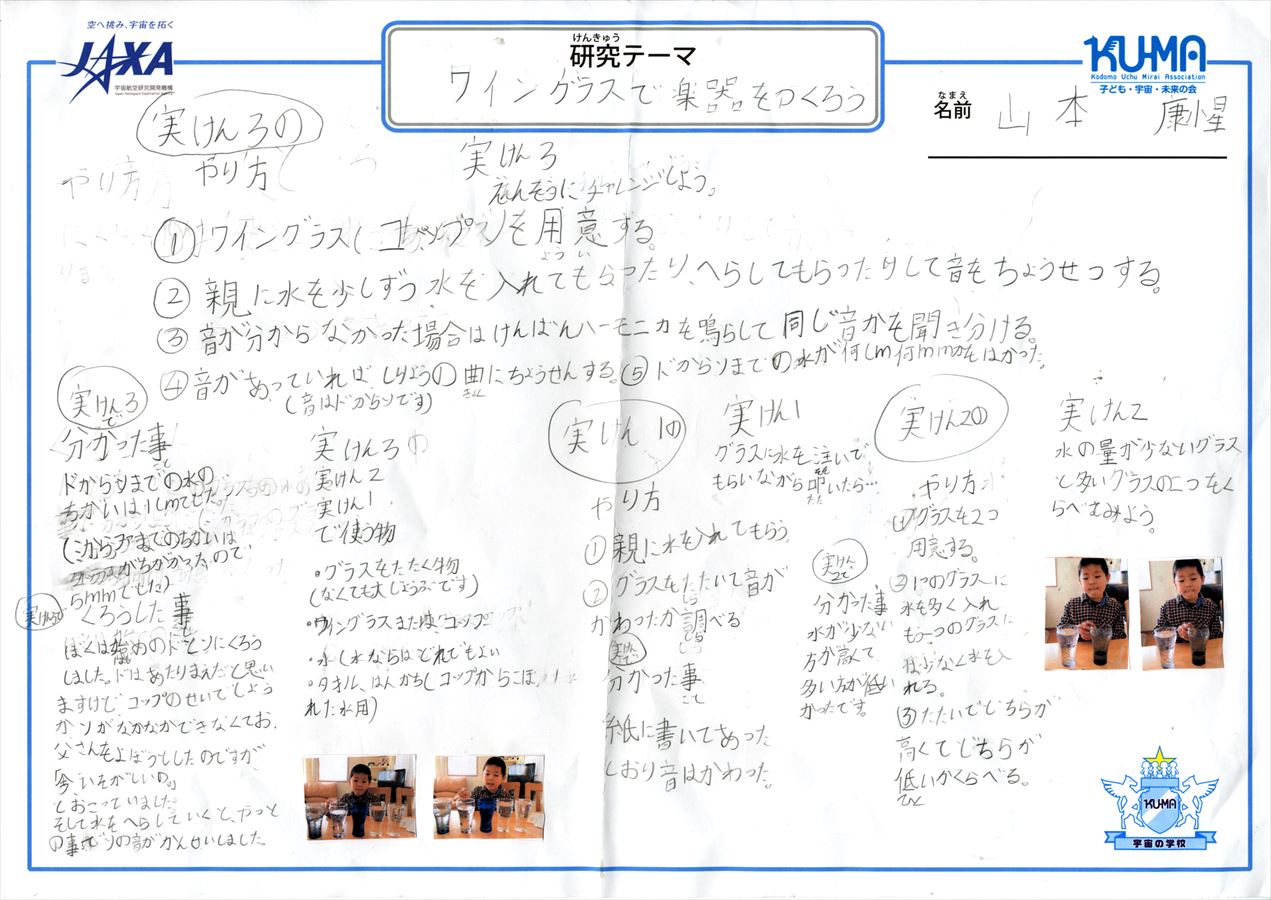 空へ挑み、宇宙を拓く
JAXA
宇宙航空研究開発機構
Japan Aerospace Exploration Agency
けんきゅう
研究テーマ
ワイングラスで楽器をつくろう
KU-MA
Kodomo Uchu Mirai Association
子ども・宇宙・未来の会
なまえ
名前
山本 康惺
実けん3の
やり方
実けん3
えんそうにチャレンジしよう。
①ワイングラス(コップ)を用意する。
ようい
②親に水を少しずつ水を入れてもらったり、へらしてもらったりして音をちょうせつする。
③音が分からなかった場合はけんばんハーモニカを鳴らして同じ音かを聞き分ける。
④音があっていればしりょうの曲にちょうせんする。⑤ドからソまでの水が何cm何mmかをはかった。
きょく
(音はドからソです)
実けん3
で
分かった事
こと
ドからソまでの水の
ちがいは1cmでした。
(
までのちがいは
がちがかったので
5mmでした)
実けん3で
くろうした事
こと
ぼくは始めのドとソにくろう
はじ
しました。ドはあたりまえだと思い
ますけどコップのせいでしょう
かソがなかなかできなくてお
父さんをよぼうとしたのですが
「今いそがしいの。」
とおこっていました。
そして水をへらしていくと、やっと
の事でソの音がかんせいしました
実けん3の
実けん2
実けん1
で使う物
・グラスをたたく物
(なくても大じょうぶです)
・ワイングラスまたは、コップ
・水(水ならばどれでもよい
・タオル、はんかち(コップからこぼ
れた水用)
実けん1の
やり方
①親に水を入れてもらう。
②グラスをたたいて音が
かわったか調べる
しら
実けん1で
分かった事
こと
紙に書いてあった
とおり音はかわった。
実けん1
グラスに水を注いで
そそ
もらいながら叩いたら…
たた
実けん2の
やり方
①グラスを2つ
用意する。
②1つのグラスに
水を多く入れ
もう一つのグラスに
は少なく水を入
れる。
③たたいてどちらが
高くてどちらが
低いかくらべる。
ひく
実けん
2で
分かった事
水が少ない
方が高くて
多い方が低い
かったです。
実けん2
水の量が少ないグラス
と多いグラスの二つをく
らべてみよう。
KU-MA
宇宙の学校